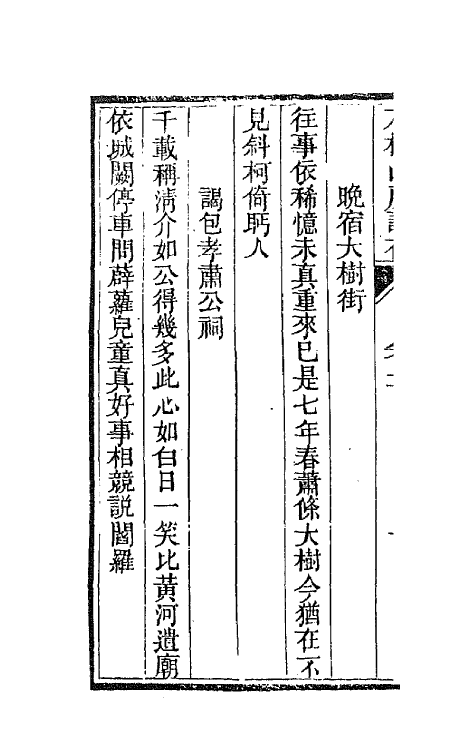 晩宿大樹街
往事依稀憶未真重來已是七年春蕭條大樹今猶在不
見斜柯倚眄人
謁包孝肅公祠
千載稱淸介如公得幾多此心如白日一笑比黃河遺廟
依城闕停車問薜蘿兒童真好事相競説閻羅